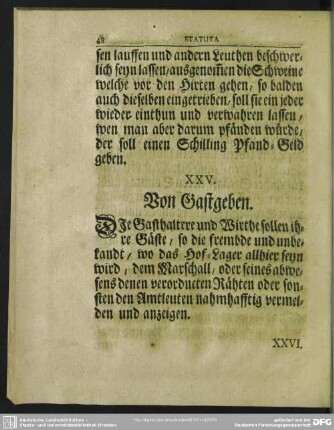 48 STATUTA
sen lauffen und andern Leuthen beschwer-
lich seyn lassen/ ausgenom̃en die Schweine
welche vor den Hirten gehen, so balden
auch dieselben eingetrieben, soll sie ein jeder
wieder einthun und verwahren lassen,
wen man aber darum pfänden würde,
der soll einen Schilling Pfand-Geld
geben.
XXV.
Von Gastgeben.
DJe Gasthaltere und Wirthe sollen ih-
re Gäste, so die frembde und unbe-
kandt, wo das Hof-Lager allhier seyn
wird, dem Marschall, oder seines abwe-
sens denen verordneten Rähten oder son-
sten den Amtleuten nahmhafftig vermel-
den und anzeigen.
XXVI.
DFG